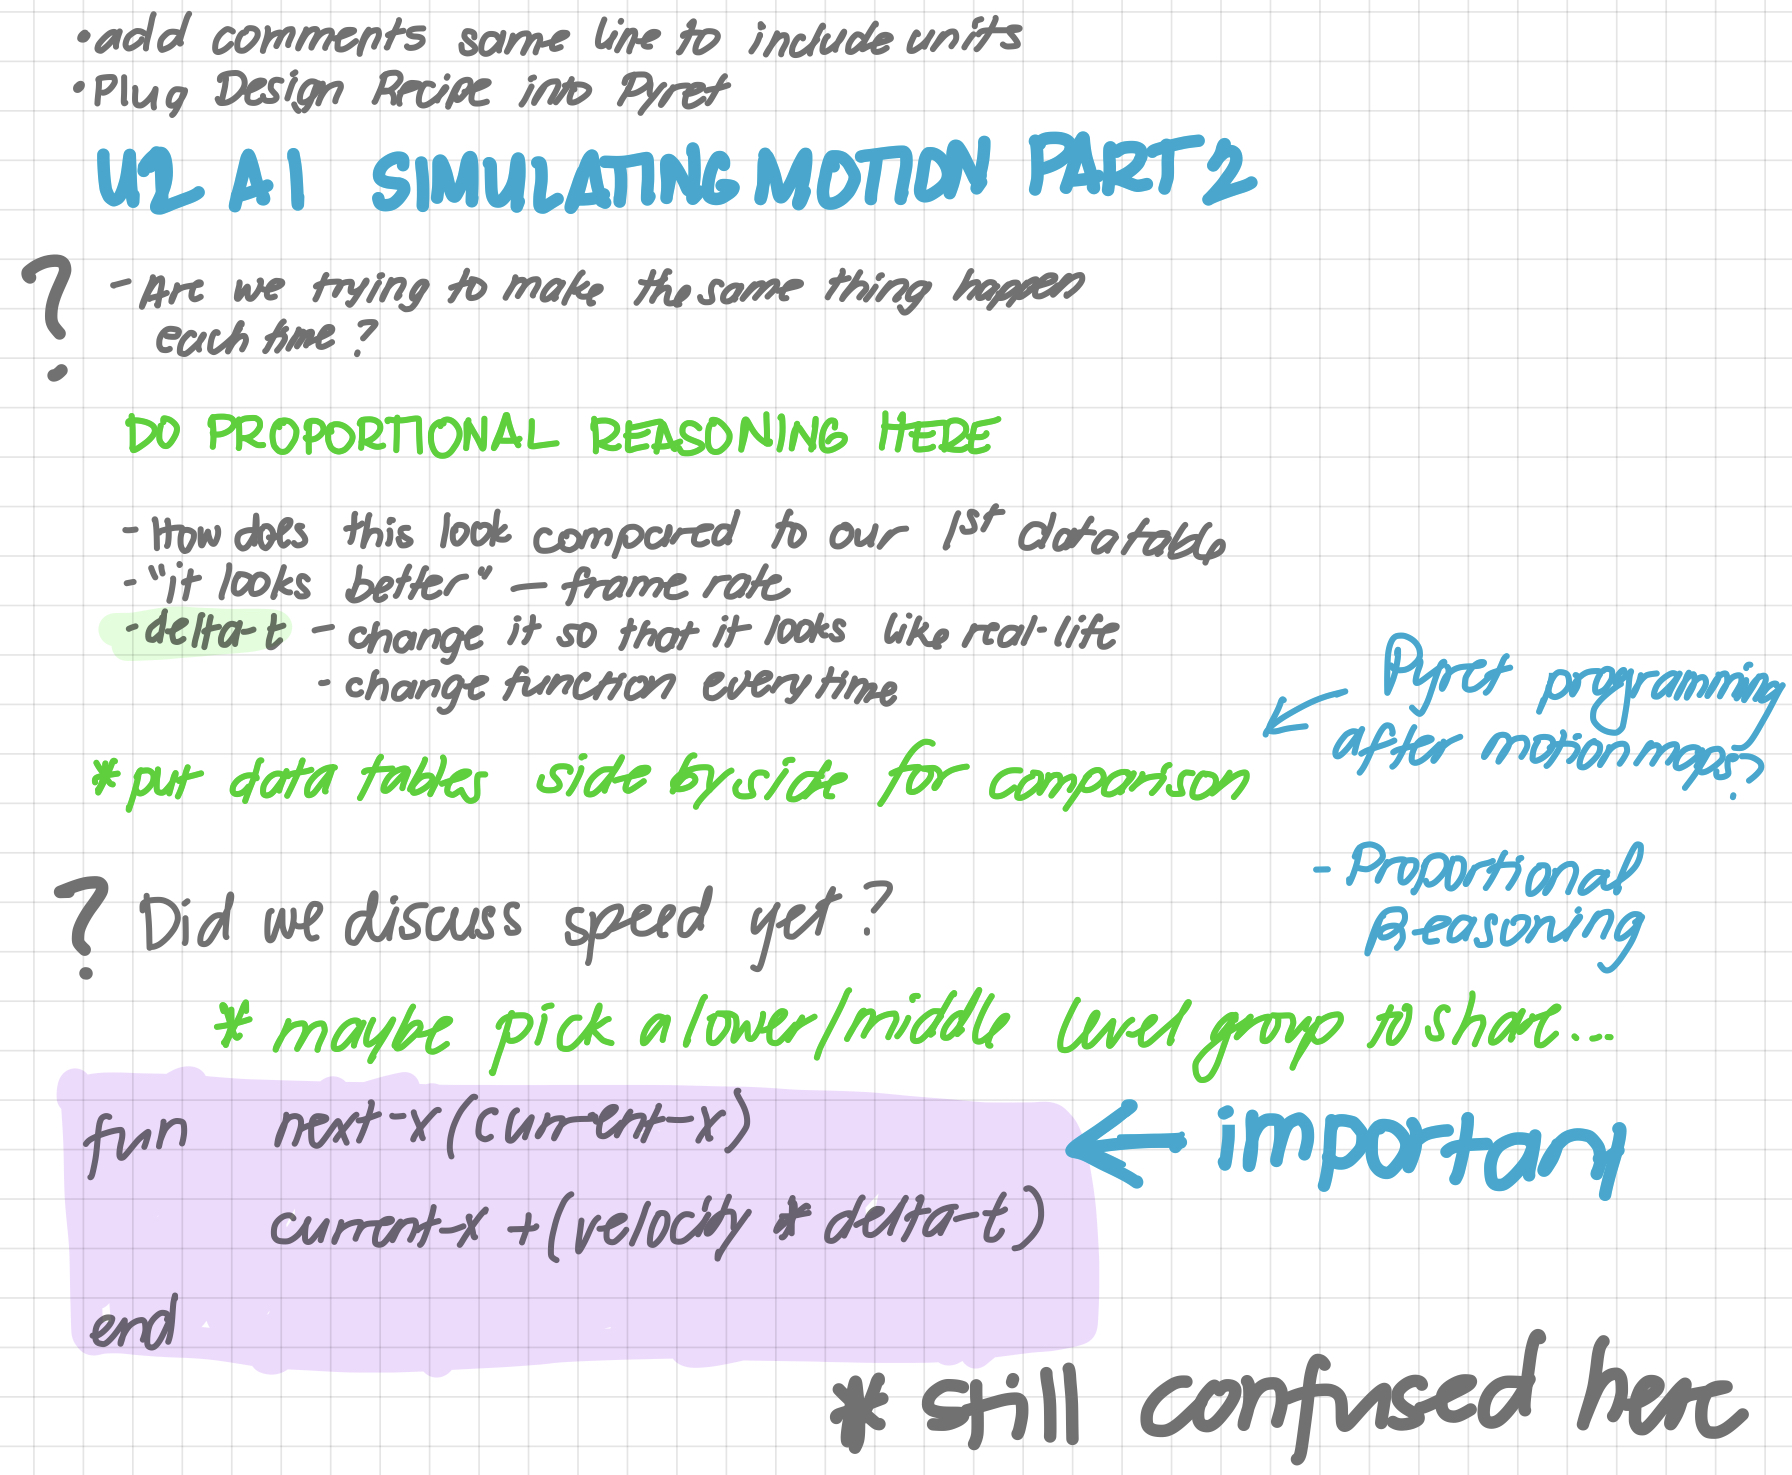 • add comments same line to include units
• Plug Design Recipe into Pyret
U2 A1 SIMULATING MOTION PART 2
? - Are we trying to make the same thing happen
each time?
DO PROPORTIONAL REASONING HERE
- How does this look compared to our 1st data table
- "it looks better" - frame rate
- delta-t - change it so that it looks like real-life
- change function every time
Pyret programming
after motion maps?
* put data tables side by side for comparison
- Proportional
Reasoning
? Did we discuss speed yet?
* maybe pick a lower/middle level group to share...
fun next-x(current-x)
← important
current-x + (velocity * delta-t)
end
* still confused here